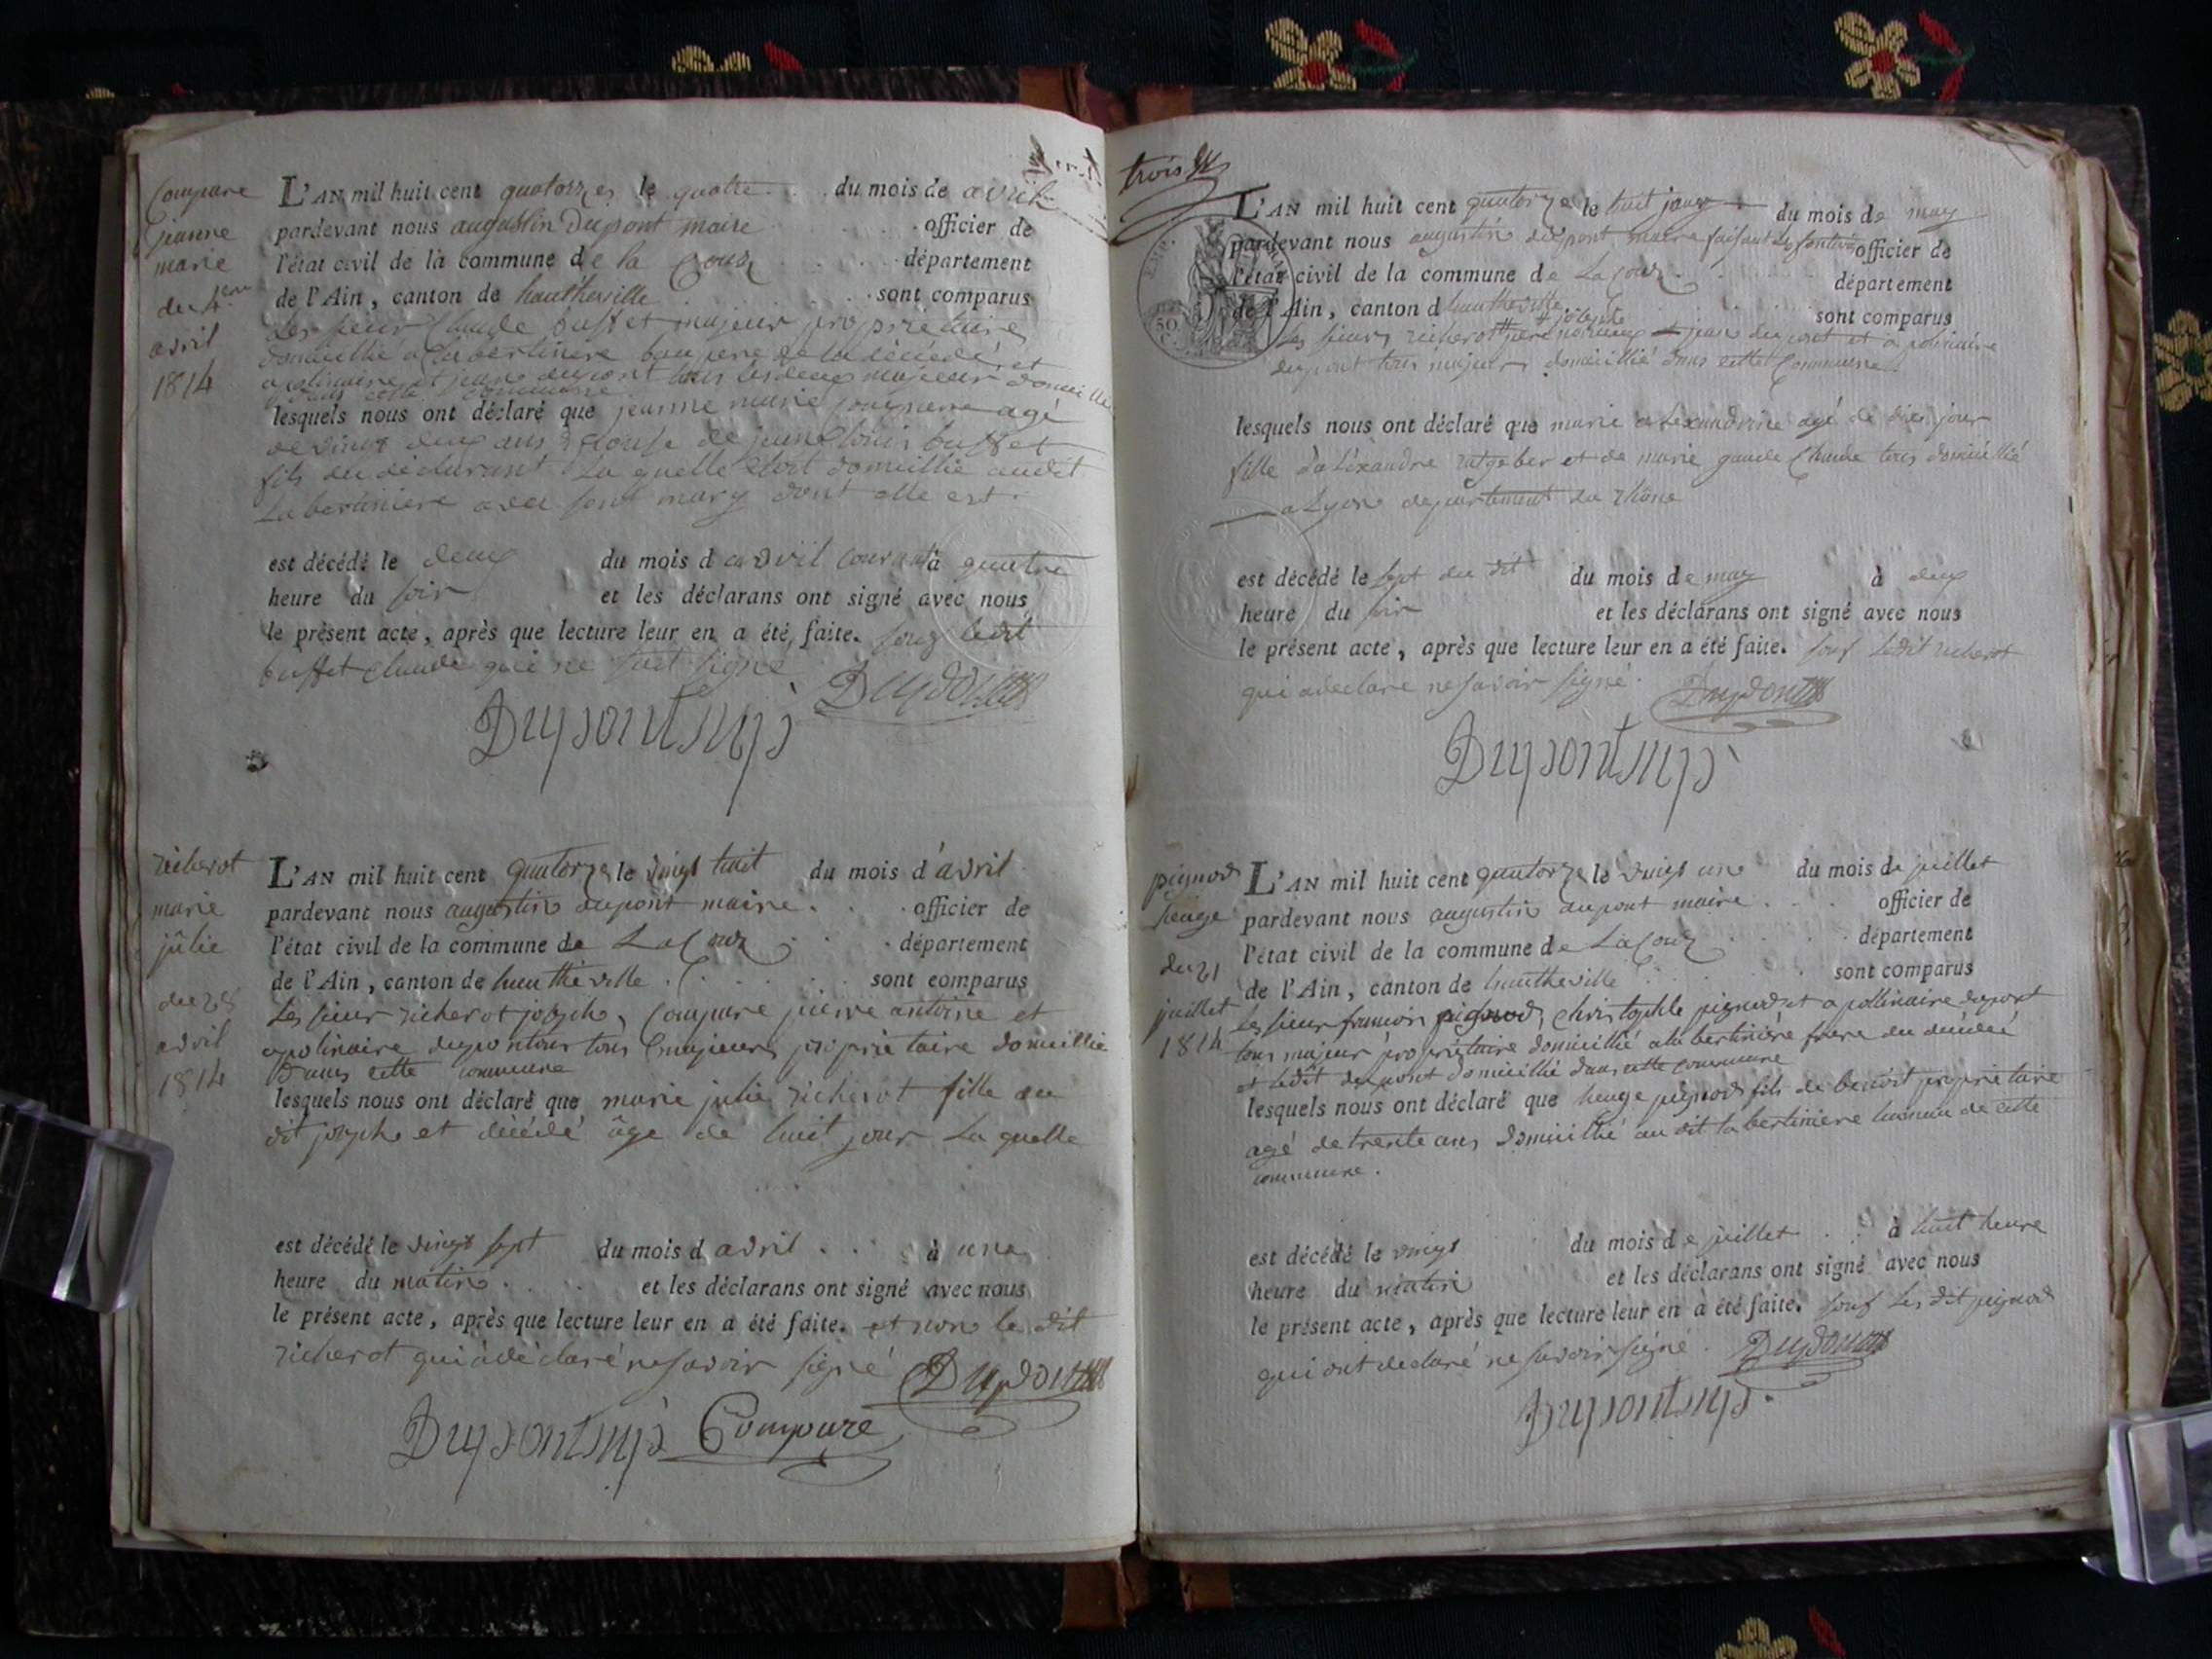 Compare
jeanne
marie
du 4
avril
1814
L'AN mil huit cent quatorze, le quatre du mois de avril
pardevant nous augustin Dupont maire officier de
l'état civil de la commune de la Cour département
de l'Ain, canton de hautheville sont comparus
Les sieur Claude buffet majeur proprietaire
domicillié a labertiniere beaupere de la décédé, et
apolinaire et jean dupont tous les deux majeur domicillié
dans cette commune
lesquels nous ont déclaré que jeanne marie agé
de vingt deux ans Epouse de jean Louis buffet
fils du déclarant La quelle etoit domicillié audit
Labertiniere avec son mary dont elle est
est décédé le deux du mois d avril courant à quatre
heure du soir et les déclarans ont signé avec nous
le présent acte, après que lecture leur en a été faite. souf ledit
buffet Claude qui ne sait signé
Dupont
Dupont
richerot
marie
julie
du 28
avril
1814
L'AN mil huit cent quatorze le vingt huit du mois d'avril
pardevant nous augustin dupont maire officier de
l'état civil de la commune de La Cour département
de l'Ain, canton de hauthéville sont comparus
Les sieur richerot joseph, Compare pierre antoine et
apolinaire dupont tous majeurs proprietaire domicillié
Dans cette commune
lesquels nous ont déclaré que marie julie richerot fille du
dit joseph et décédé âge de huit jour La quelle
est décédé le vingt sept du mois d avril à une
heure du matin et les déclarans ont signé avec nous
le présent acte, après que lecture leur en a été faite. et non le dit
richerot qui a déclaré ne savoir signé
Dupont
Dupont Compare
trois
L'AN mil huit cent quatorze le huit jour du mois de may
pardevant nous augustin dupont maire faisant les fontions officier de
l'état civil de la commune de La Cour département
de l'Ain, canton d hautheville sont comparus
Les sieurs richerot jean dupont et apolinaire
dupont tous majeurs domicillié dans cette Commune
lesquels nous ont déclaré que marie alexandrine agé de dix jour
fille d'aléxandre ratgeber et de marie gaude Claude tous domicillié
a Lyon departement du rhône
est décédé le sept du dit du mois de may à deux
heure du soir et les déclarans ont signé avec nous
le présent acte, après que lecture leur en a été faite. souf ledit richerot
qui a declaré ne savoir signé.
Dupont
Dupont
pignod
heuge
du 21
juillet
1814
L'AN mil huit cent quatorze le vingt une du mois de juillet
pardevant nous augustin dupont maire officier de
l'état civil de la commune de La Cour département
de l'Ain, canton de hautheville sont comparus
Les sieur francois pignod, christophle pignod et apollinaire dupont
tous majeur propriétaire domicillié a la bertinière frere du décédé
et ledit dupont domicillié dans cette commune
lesquels nous ont déclaré que heuge pignod fils de benoit propriétaire
agé de trente ans Domicillié au dit la bertiniere hameau de cette
commune.
est décédé le vingt du mois de juillet à huit heure
heure du matin et les déclarans ont signé avec nous
le présent acte, après que lecture leur en a été faite. souf Les dit pignod
qui ont declaré ne savoir signé.
Dupont
Dupont